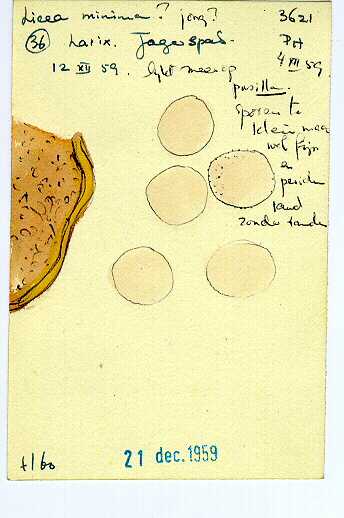 Licea minima? jong? 3621
36 Larix. Jagerspad. PH
12 XII 59. lijkt meer op 4 XII 59
pusilla.
Sporen te
klein maar
wel fijn
en
peridie
rand
zonder tanden
t/60
21 dec. 1959